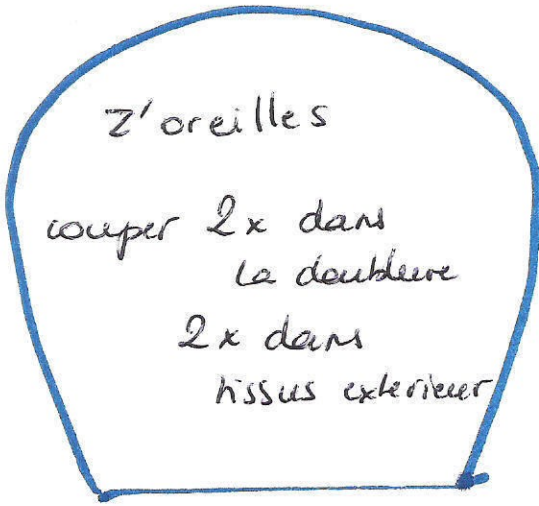 z'oreilles
couper 2x dans
la doublure
2x dans
tissus exterieur